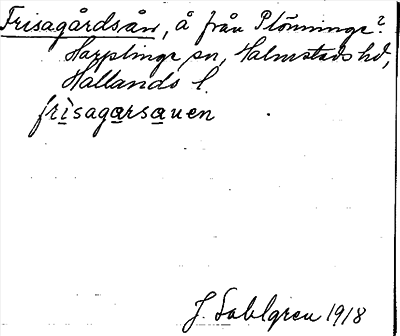 Frisagårdsån, å från Plönninge?
Harplinge sn, Halmstads hd,
Hallands l.
frìsagarsauen
J. Sahlgren 1918